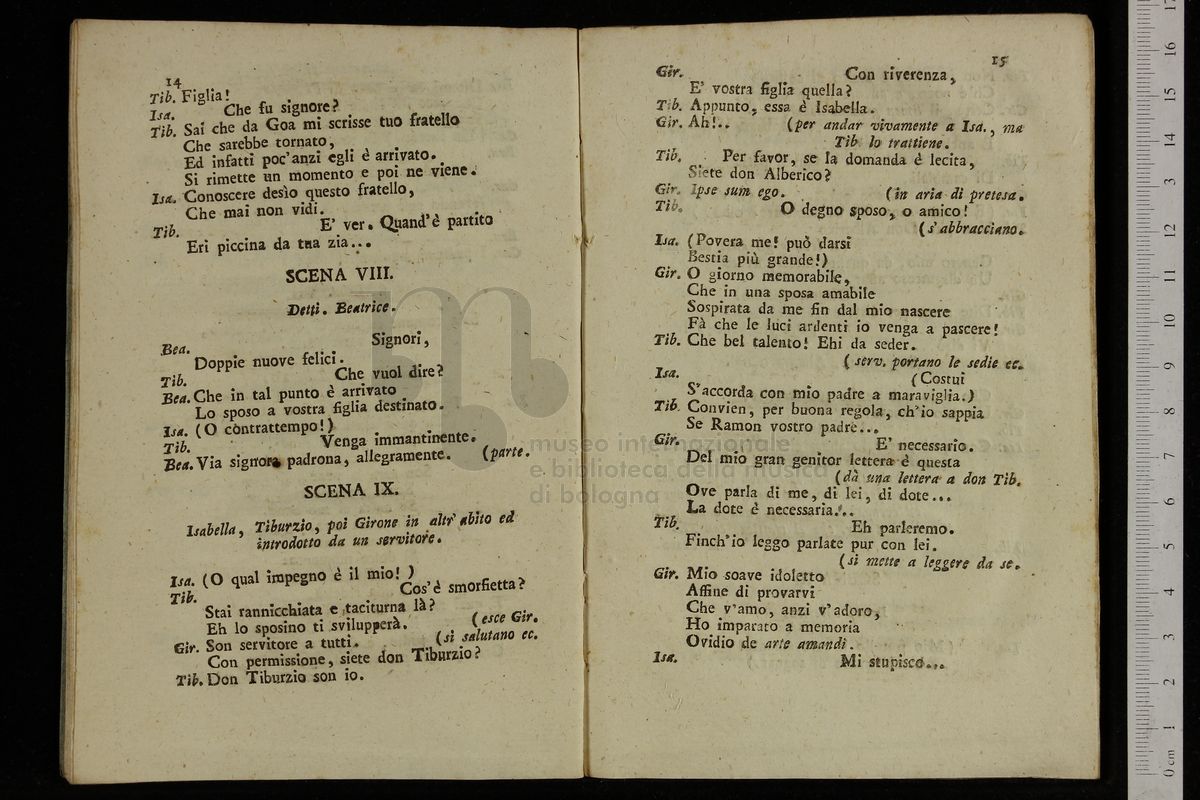 14
Tib. Figlia!
Isa. Che fu signore?
Tib. Sai che da Goa mi scrisse tuo fratello
Che sarebbe tornato,
Ed infatti poc'anzi egli è arrivato.
Si rimette un momento e poi ne viene.
Isa. Conoscere desìo questo fratello,
Che mai non vidi.
Tib. E' ver. Quand'è partito
Eri piccina da tua zia...
SCENA VIII.
Detti. Beatrice.
Bea. Signori,
Doppie nuove felici.
Tib. Che vuol dire?
Bea. Che in tal punto è arrivato
Lo sposo a vostra figlia destinato.
Isa. (O contrattempo!)
Tib. Venga immantinente.
Bea. Via signora padrona, allegramente. (parte.
SCENA IX.
Isabella, Tiburzio, poi Girone in altr' abito ed
introdotto da un servitore.
Isa. (O qual impegno è il mio! )
Tib. Cos'è smorfietta?
Stai rannicchiata e taciturna là?
Eh lo sposino ti svilupperà. (esce Gir.
Gir. Son servitore a tutti. (si salutano ec.
Con permissione, siete don Tiburzio?
Tib. Don Tiburzio son io.
15
Gir. Con riverenza,
E' vostra figlia quella?
Tib. Appunto, essa è Isabella.
Gir. Ah!.. (per andar vivamente a Isa., ma
Tib lo trattiene.
Tib. Per favor, se la domanda è lecita,
Siete don Alberico?
Gir. Ipse sum ego. (in aria di pretesa.
Tib. O degno sposo, o amico!
(s'abbracciano.
Isa. (Povera me! può darsi
Bestia più grande!)
Gir. O giorno memorabile,
Che in una sposa amabile
Sospirata da me fin dal mio nascere
Fà che le luci ardenti io venga a pascere!
Tib. Che bel talento! Ehi da seder.
( serv. portano le sedie ec.
Isa. (Costui
S'accorda con mio padre a maraviglia.)
Tib. Convien, per buona regola, ch'io sappia
Se Ramon vostro padre...
Gir. E' necessario.
Del mio gran genitor lettera è questa
(dà una lettera a don Tib.
Ove parla di me, di lei, di dote...
La dote è necessaria...
Tib. Eh parleremo.
Finch'io leggo parlate pur con lei.
(si mette a leggere da se.
Gir. Mio soave idoletto
Affine di provarvi
Che v'amo, anzi v'adoro,
Ho imparato a memoria
Ovidio de arte amandi.
Isa. Mi stupisco...
museo internazionale
e biblioteca della musica
di bologna
0 cm 1 2 3 4 5 6 7 8 9 10 11 12 13 14 15 16 17